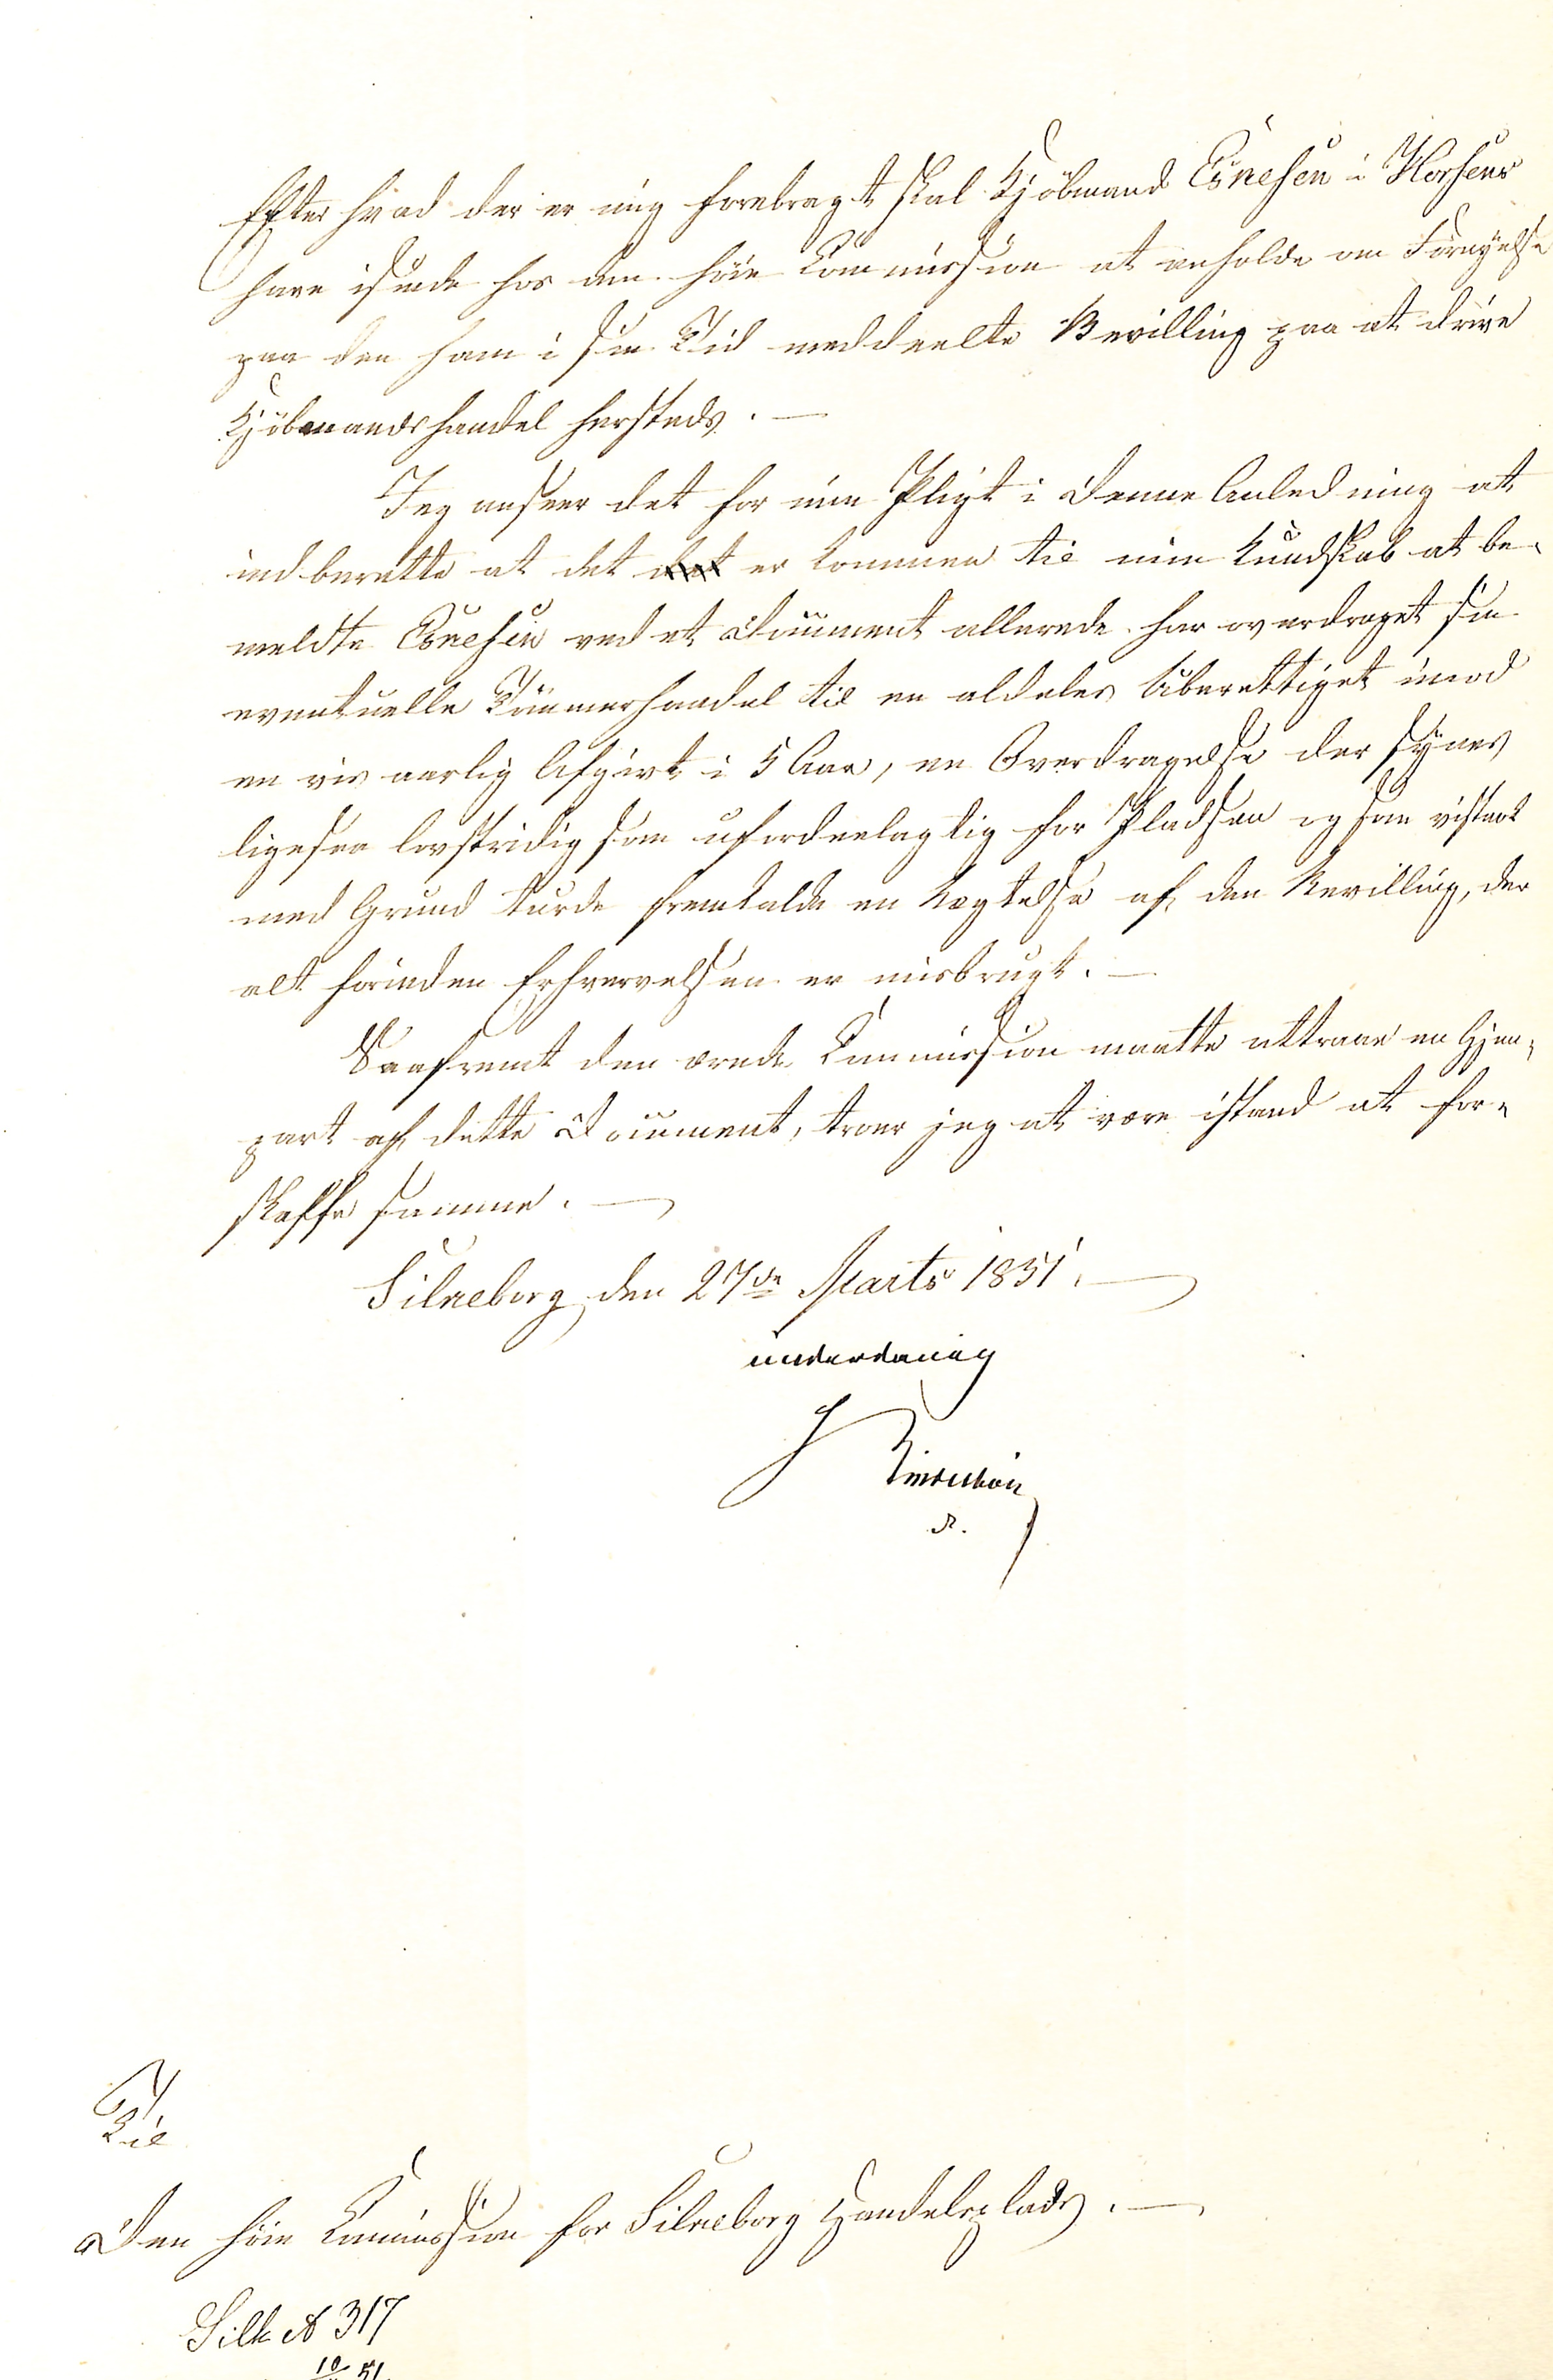 Efter hvad der er mig forebragt skal Kjöbmand Esnesen i Horsens
have isinde hos den höie Commission at anholde om Fornyelse
paa den ham i sin Tid meddeelte Bevilling paa at drive
Kjöbmandshandel hersteds. —
Jeg anseer det for min Pligt i denne Anledning at
indberette at det det er kommen til min Kundskab at be-
meldte Esnesen ved et Document allerede har overdraget sin
eventuelle Tömmerhandel til en aldeles Uberettiget imod
en vis aarlig Afgivt i 5 Aar, en Overdragelse der synes
ligesaa lovstridig som ufordeelagtig for Pladsen og som vistnok
med Grund turde fremkalde en Nægtelse af den Bevilling, der
alt forinden Erhvervelsen er misbrugt. —
Saafremt den ærede Commission maatte attraae en Gjen-
part af dette Document, troer jeg at være istand at for-
skaffe samme. —
Silkeborg den 27de Marts 1851. —
underdanig
Til
Den höie Commission for Silkeborg Handelsplads. —
Silk № 317
10/ 51.